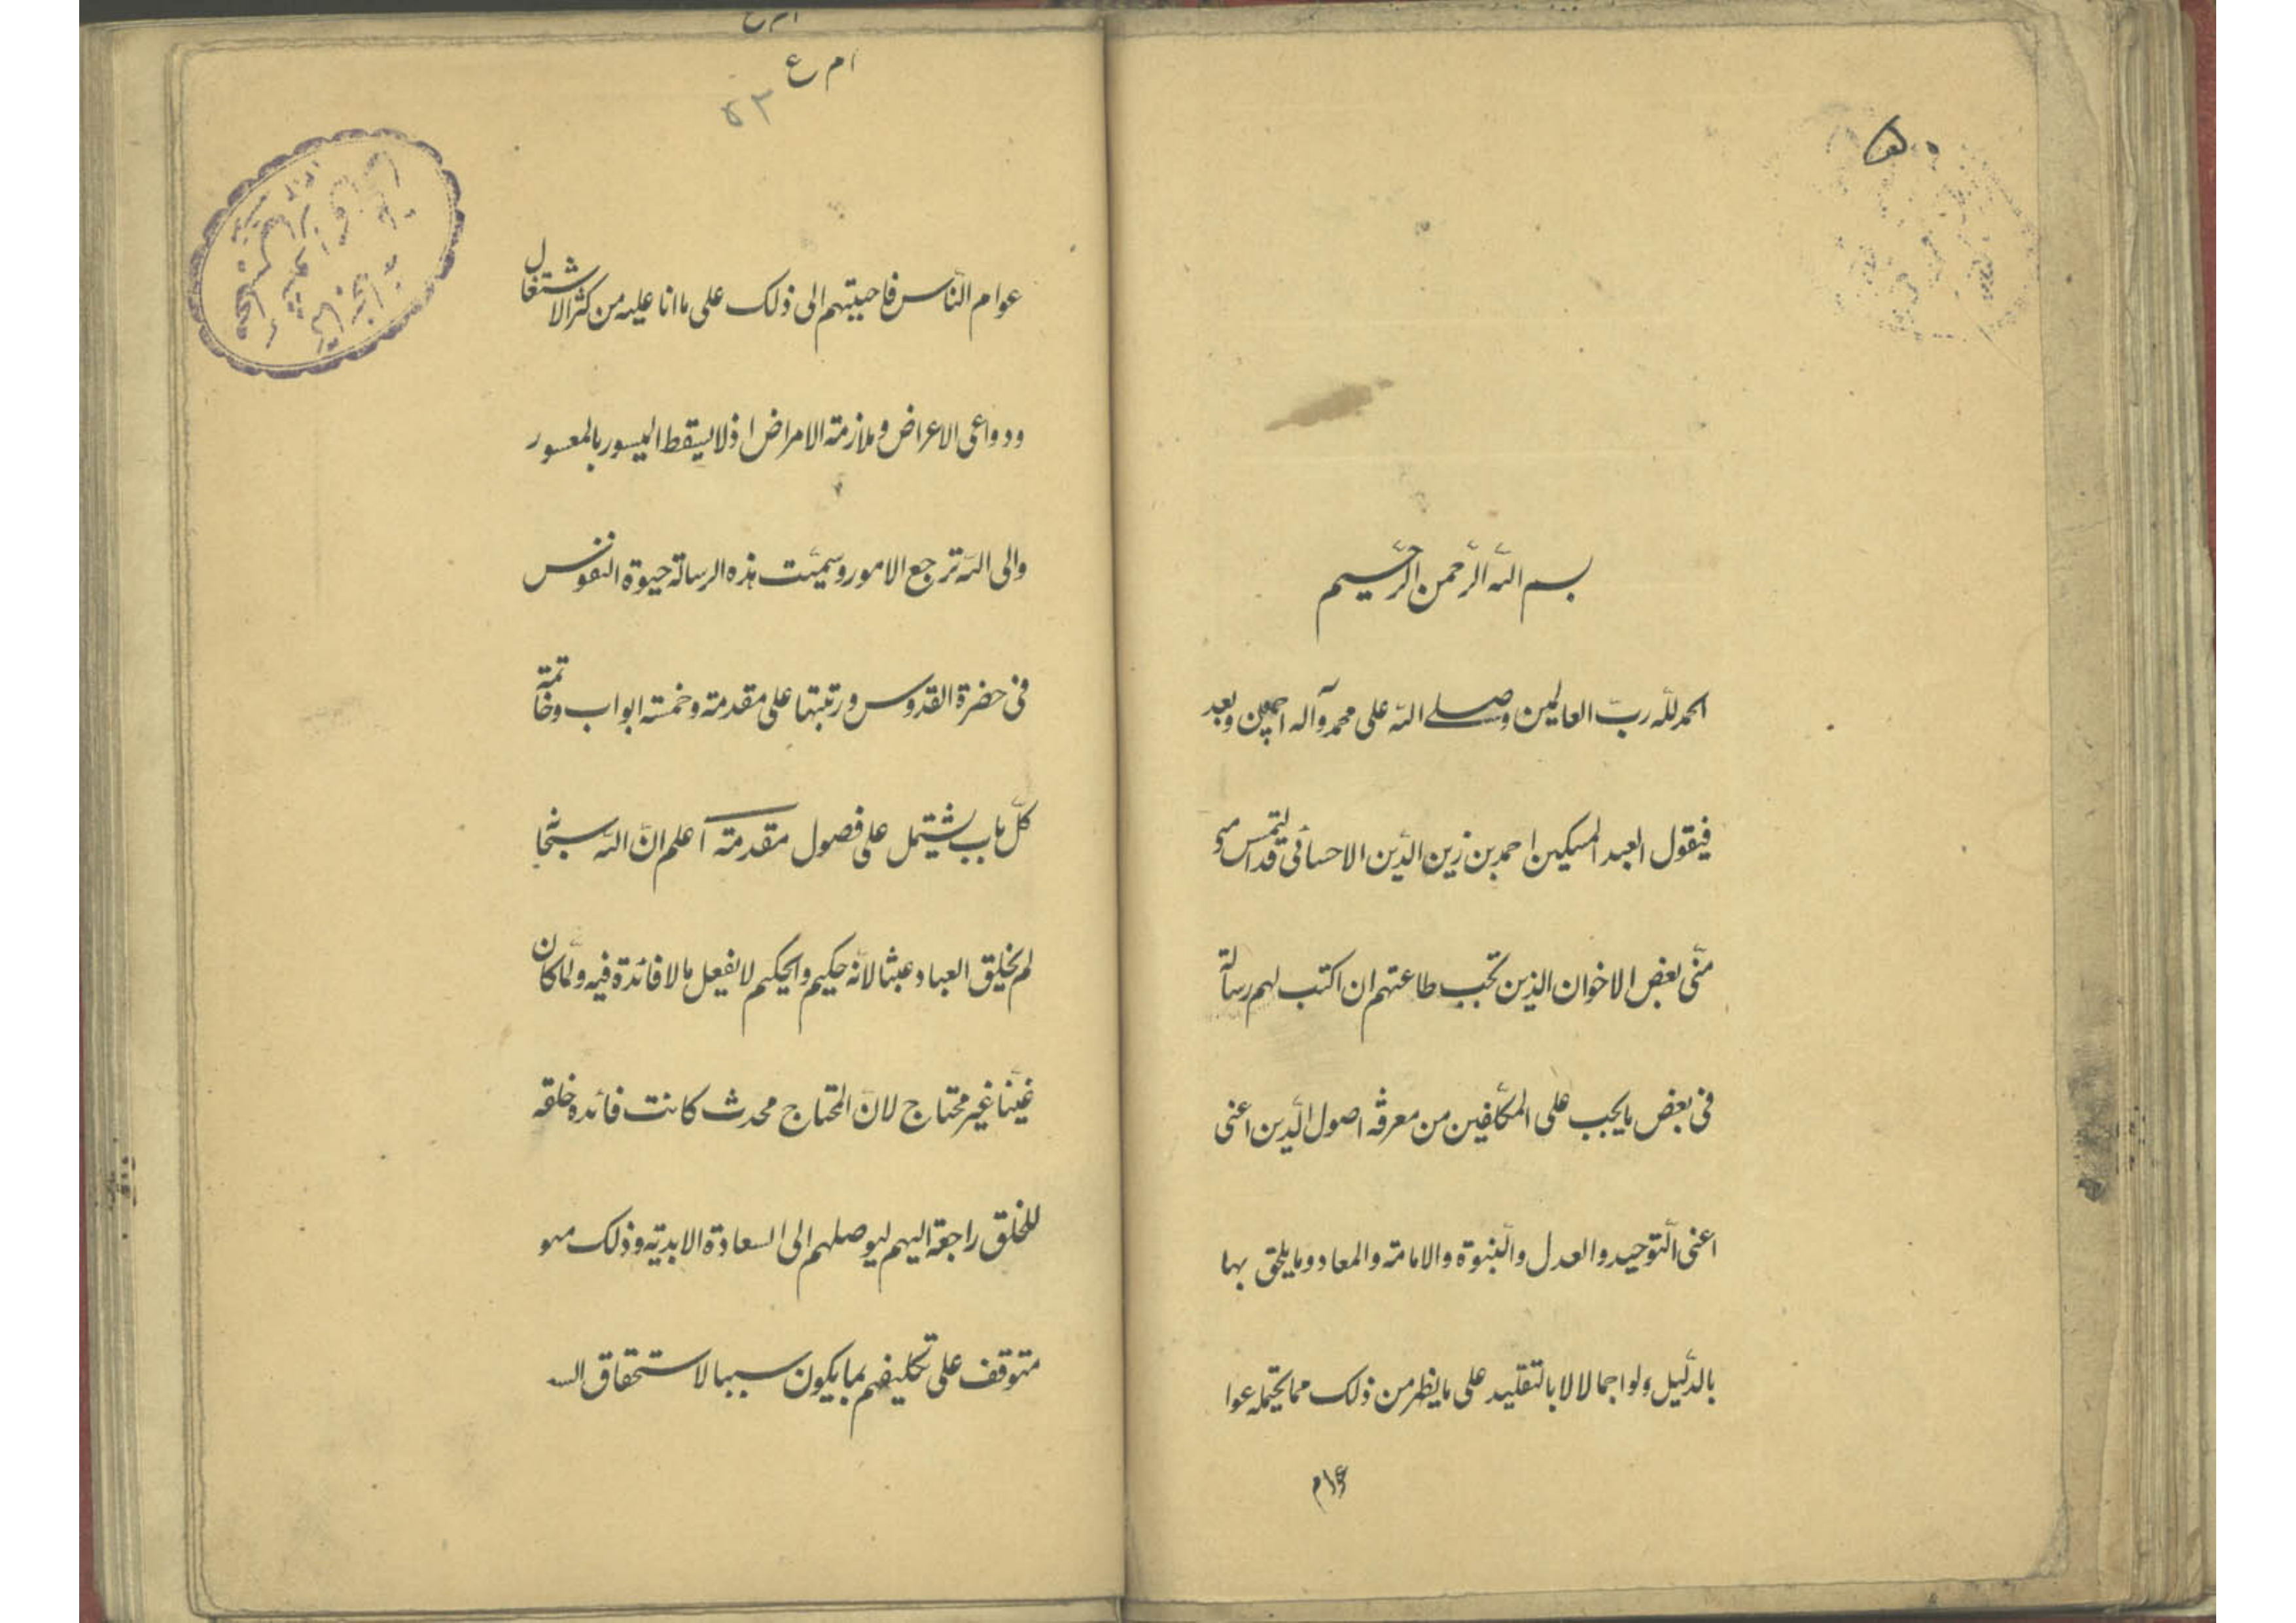 بسم الله الرّحمن الرّحيم
الحمد للّه ربّ العالمين وصلى الله على محمد وآله اجمعين وبعد
فيقول العبد المسكين احمد بن زين الدّين الاحسائى قد التمس
منّى بعض الاخوان الذين تجب طاعتهم ان اكتب لهم رسالة
فى بعض ما يجب على المكلّفين من معرفة اصول الدّين اعنى
اعنى التّوحيد والعدل والنّبوة والامامة والمعاد وما يلحق بها
بالدّليل ولو اجمالا لا بالتقليد على ما يظهر من ذلك مما يحتمله عوا
عوام
ام ع
٥٣
عوام النّاس فاجبتهم الى ذلك على ما انا عليه من كثر الاشتغال
ودواعى الاعراض وملازمة الامراض اذ لا يسقط الميسور بالمعسور
والى اللّه ترجع الامور وسميّت هذه الرسالة حيوة النفوس
فى حضرة القدوس ورتبتها على مقدمة وخمسة ابواب وخاتمة
كلّ باب يشتمل على فصول مقدمة اعلم انّ اللّه سبحا
لم يخلق العباد عبثا لانّه حكيم والحكيم لا يفعل ما لا فائدة فيه ولمّا كان
غنيّا غير محتاج لانّ المحتاج محدث كانت فائدة خلقه
للخلق راجعة اليهم ليوصلهم الى السعادة الابديّة وذلك
متوقف على تكليفهم بما يكون سببا لاستحقاق السـ